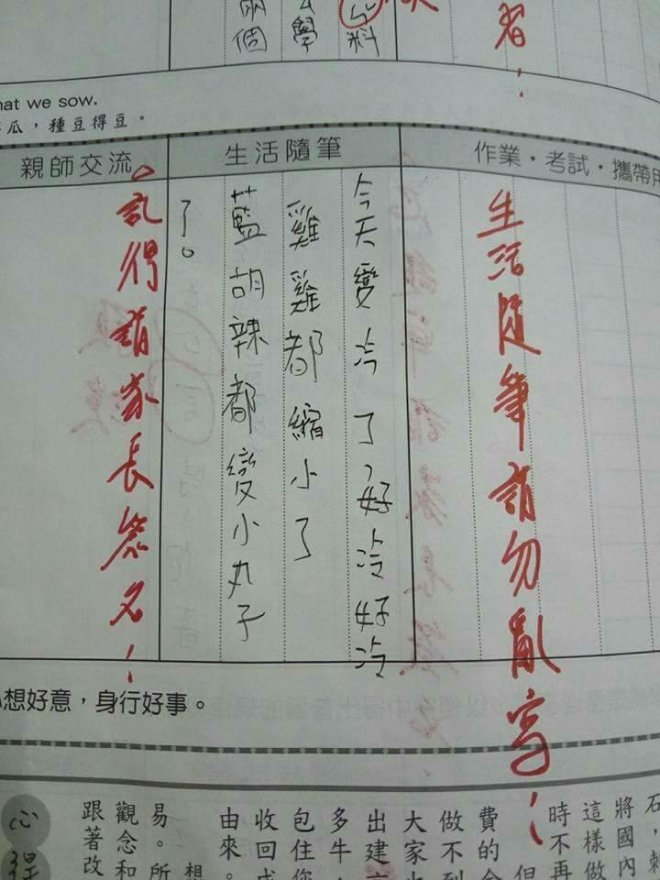 兩個
學
料
者！
hat we sow.
瓜，種豆得豆。
作業・考試・攜帶用
生活隨筆
親師交流
生活隨筆請勿亂寫！
今天變冷了，好冷好冷
雞雞都縮小了
藍胡辣都變小丸子
了。
記得請家長簽名！
心想好意，身行好事。
石，
將國內
這樣做
時不再
但
費的金
做不到
大家也
出建
多牛，
包住您
收回成
由來。
想
易。所
觀念和
跟著改
心得